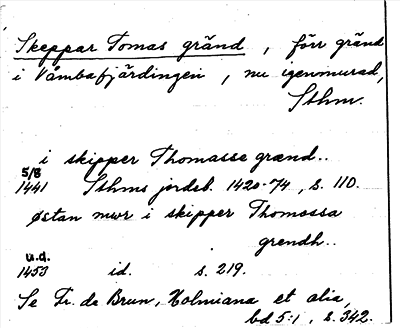 Skeppar Tomas gränd, förr gränd
i Våmbafjärdingen, nu igenmurad,
Sthm.
i skipper Thomasse grænd..
5/8
1441 Sthms jordeb. 1420-74, s. 110.
østan mwr i skipper Thomossa
grendh..
u.d.
1453 id. s. 219.
Se Fr. de Brun, Holmiana et alia,
bd 5:1, s. 342.